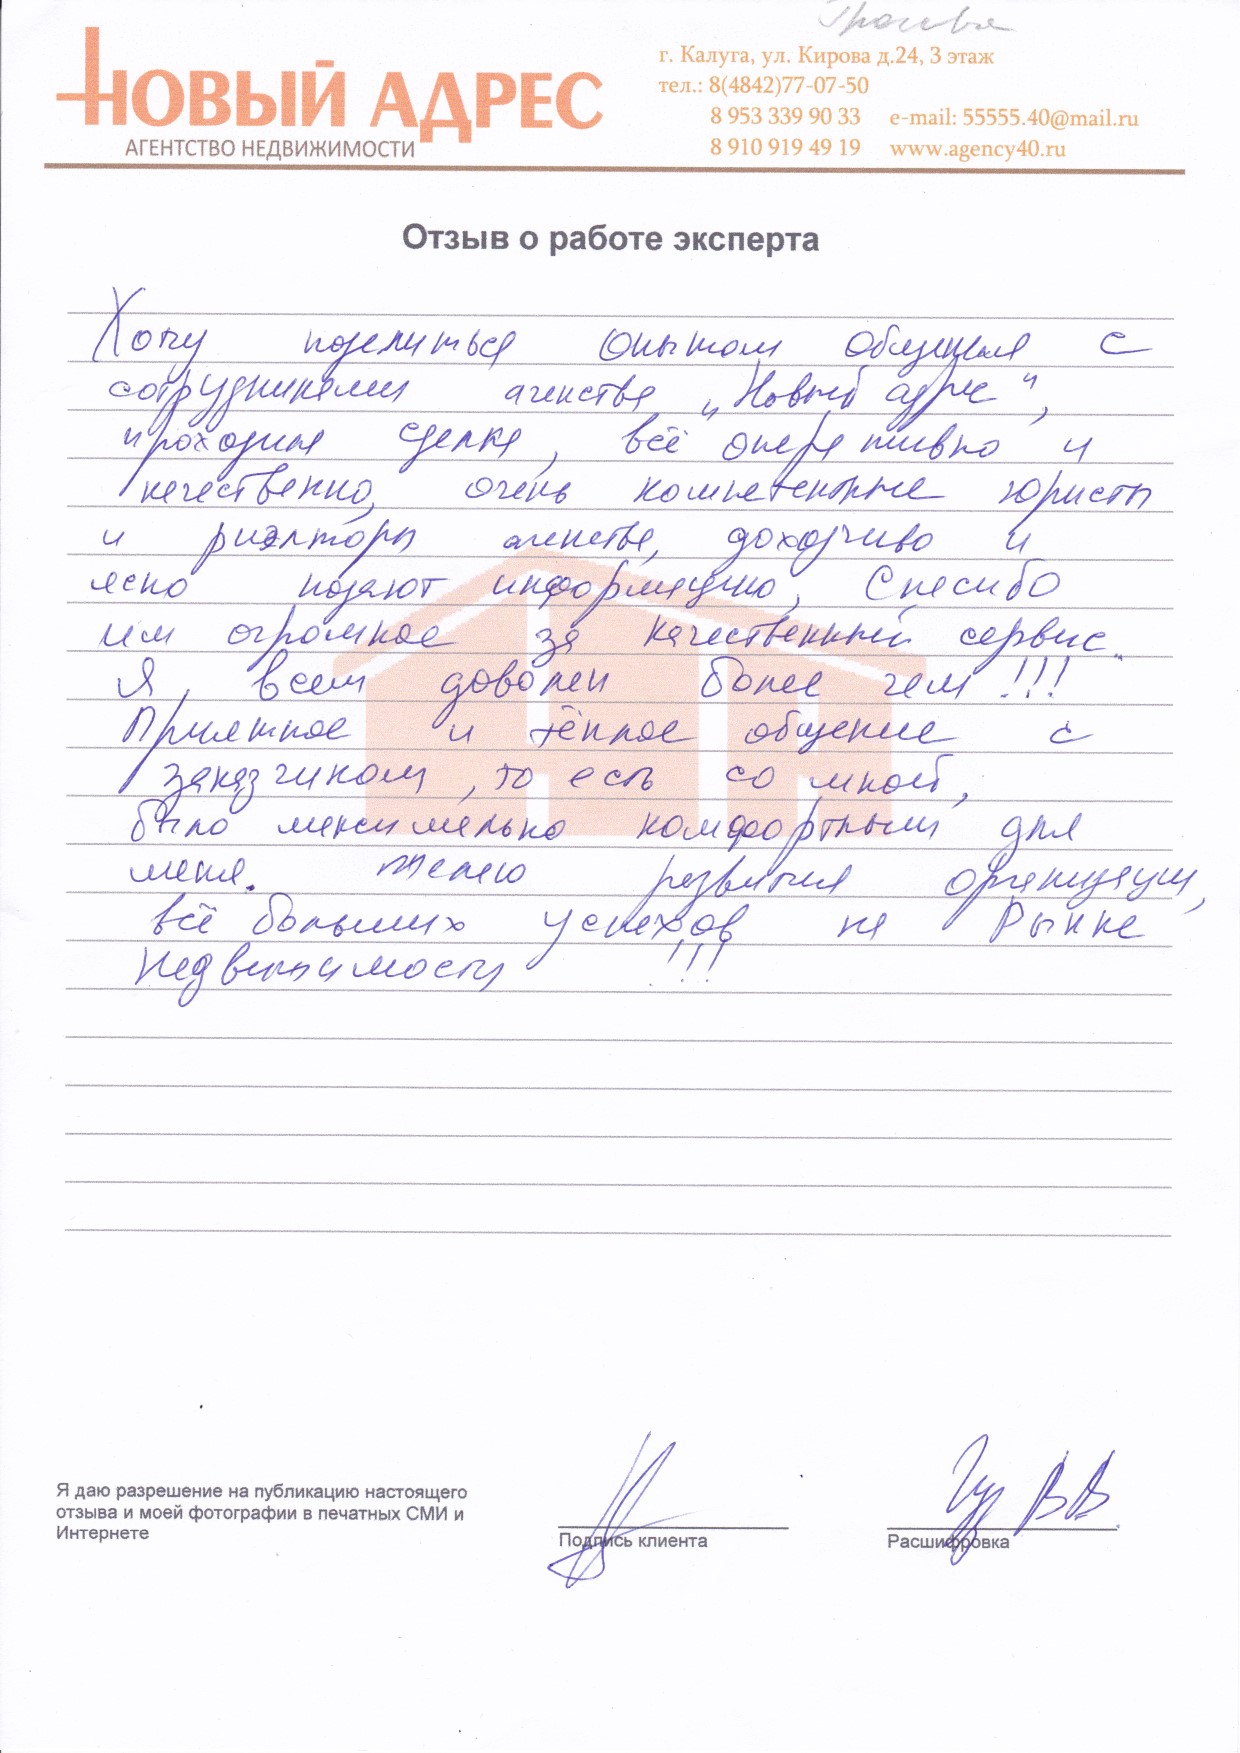 НОВЫЙ АДРЕС
АГЕНТСТВО НЕДВИЖИМОСТИ
г. Калуга, ул. Кирова д.24, 3 этаж
тел.: 8(4842)77-07-50
8 953 339 90 33 e-mail: 55555.40@mail.ru
8 910 919 49 19 www.agency40.ru
Отзыв о работе эксперта
Хочу поделиться опытом общения с
сотрудниками агенства „Новый адрес",
проходила сделка, всё оперативно и
качественно, очень компетентные юристы
и риэлторы агенства, доходчиво и
ясно подают информацию, Спасибо
им огромное за качественный сервис.
Я всем доволен более чем!!!
Приятное и тёплое общение с
заказчиком, то есть со мной,
было максимально комфортным для
меня. Желаю развития организации,
всё больших успехов на Рынке
Недвижимости !!!
Я даю разрешение на публикацию настоящего
отзыва и моей фотографии в печатных СМИ и
Интернете
Подпись клиента
Расшифровка